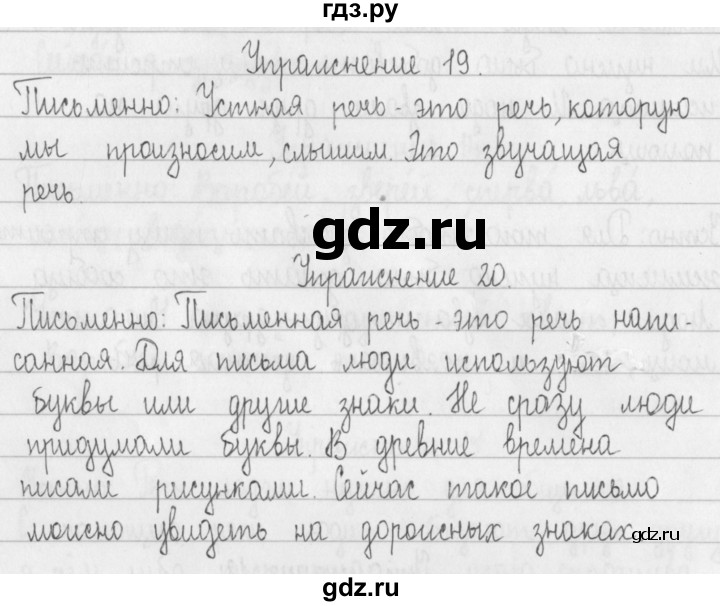 гдз.ру
Упражнение 19.
Письменно: Устная речь - это речь, которую
мы произносим, слышим. Это звучащая
речь.
gdz.ru
Упражнение 20.
Письменно: Письменная речь - это речь напи-
санная. Для письма люди используют
буквы или другие знаки. Не сразу люди
придумали буквы. В древние времена
писали рисунками. Сейчас такое письмо
можно увидеть на дорожных знаках.
gdz.ru
gdz.ru